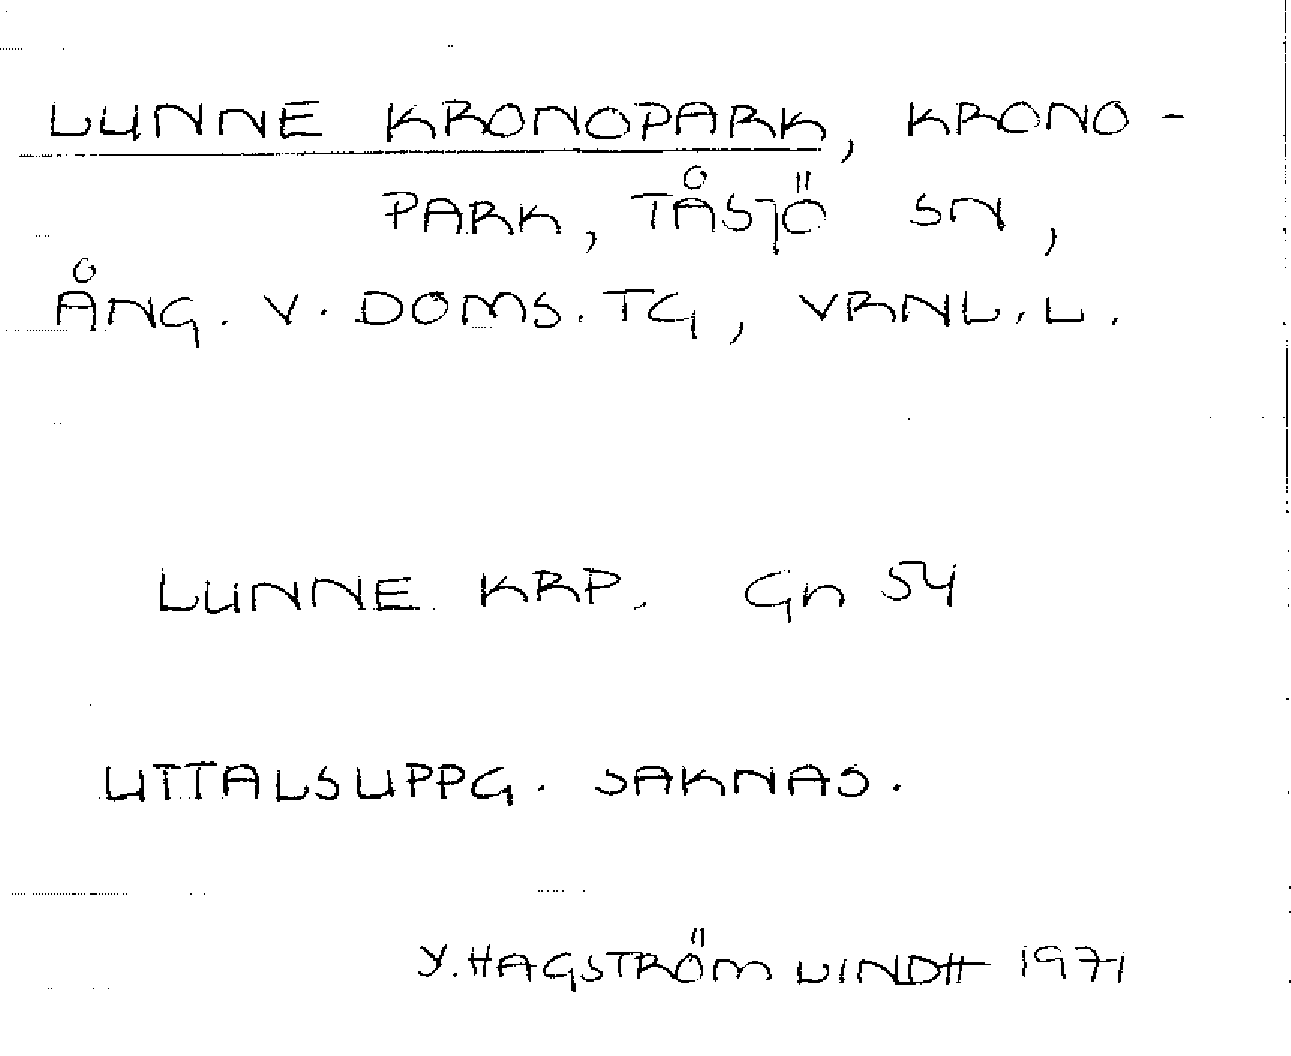 LUNNE KRONOPARK, KRONO-
PARK, TÅSJÖ SN,
ÅNG. V. DOMS. TG, VRNL. L.
LUNNE KRP. Gn 54
UTTALSUPPG. SAKNAS.
Y. HAGSTRÖM LINDH 1971